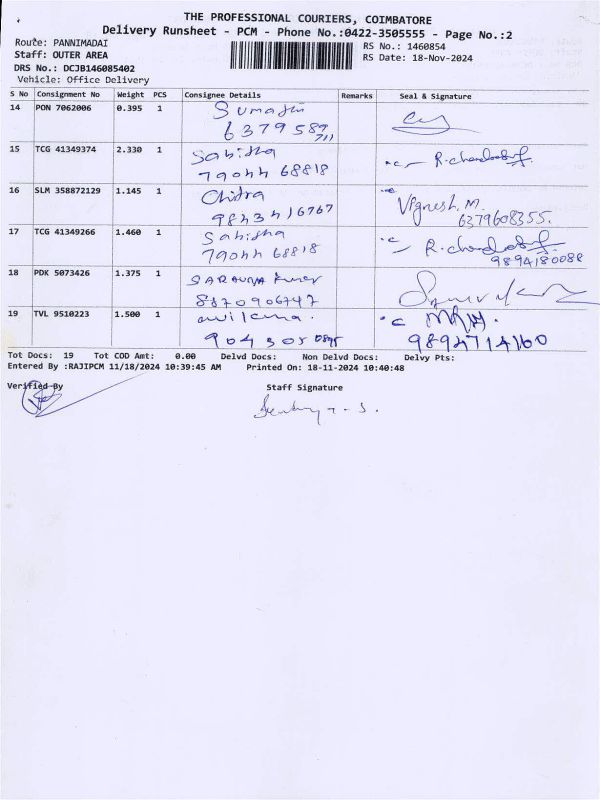 THE PROFESSIONAL COURIERS, COIMBATORE
Delivery Runsheet - PCM - Phone No.:0422-3505555 - Page No.:2
Route: PANNIMADAI
Staff: OUTER AREA
DRS No.: DCJB146085402
Vehicle: Office Delivery
RS No.: 1460854
RS Date: 18-Nov-2024
S No Consignment No Weight PCS Consignee Details Remarks Seal & Signature
14 PON 7062006 0.395 1
6379589711
15 TCG 41349374 2.330 1 Sabitha
79044 68818
16 SLM 358872129 1.145 1 Chitra Vignesh. M.
98434 16767 6379608355.
17 TCG 41349266 1.460 1 Sabitha
79044 68818 9894180088
18 PDK 5073426 1.375 1 SARAVANA Kumar
8870906747
19 TVL 9510223 1.500 1
9894714160
Tot Docs: 19 Tot COD Amt: 0.00 Delvd Docs: Non Delvd Docs: Delvy Pts:
Entered By :RAJIPCM 11/18/2024 10:39:45 AM Printed On: 18-11-2024 10:40:48
Verified By Staff Signature